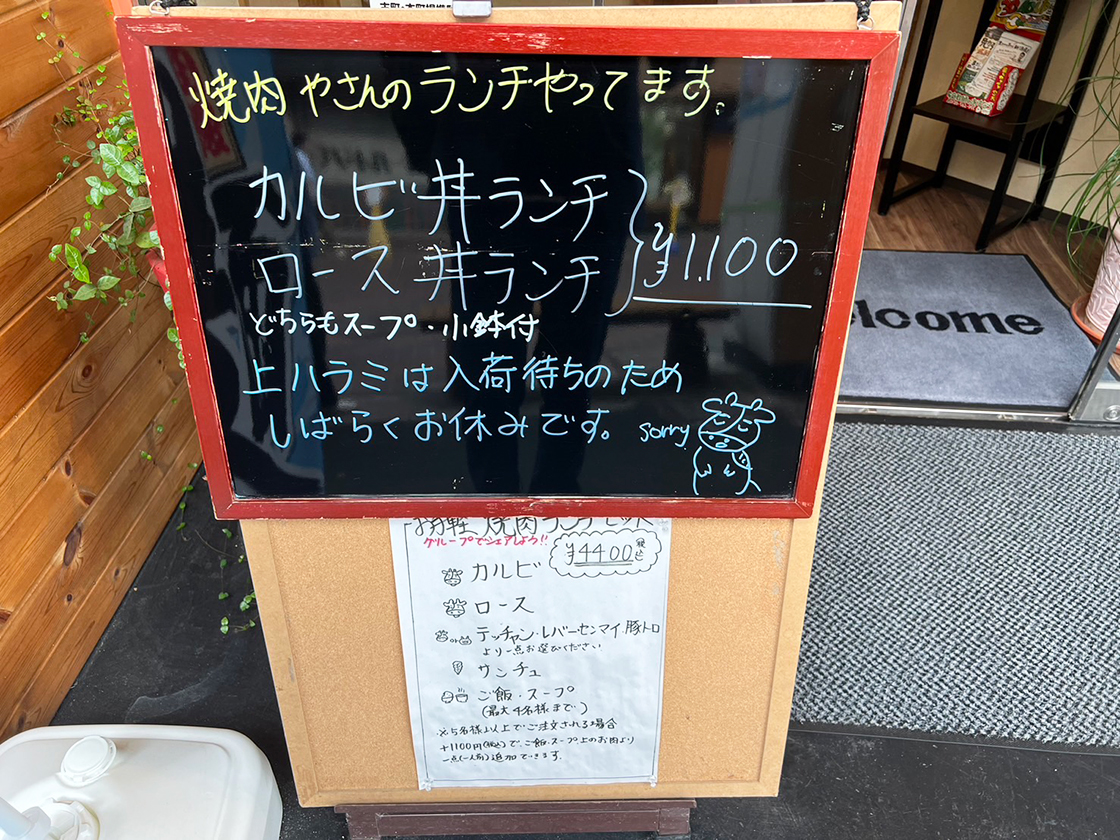 焼肉やさんのランチやってます。
カルビ丼ランチ
ロース丼ランチ
¥1.100
どちらもスープ・小鉢付
上ハラミは入荷待ちのため
しばらくお休みです。
sorry
elcome
お手軽焼肉ランチセット
グループでシェアしよう!!
¥4400税込
カルビ
ロース
or テッチャン・レバーセンマイ.豚トロ
より一点お選びください
サンチュ
ご飯・スープ
(最大4名様まで)
※5名様以上でご注文される場合
+1100円(税込)で、ご飯・スープ上のお肉より
一点(一人前)追加できます。